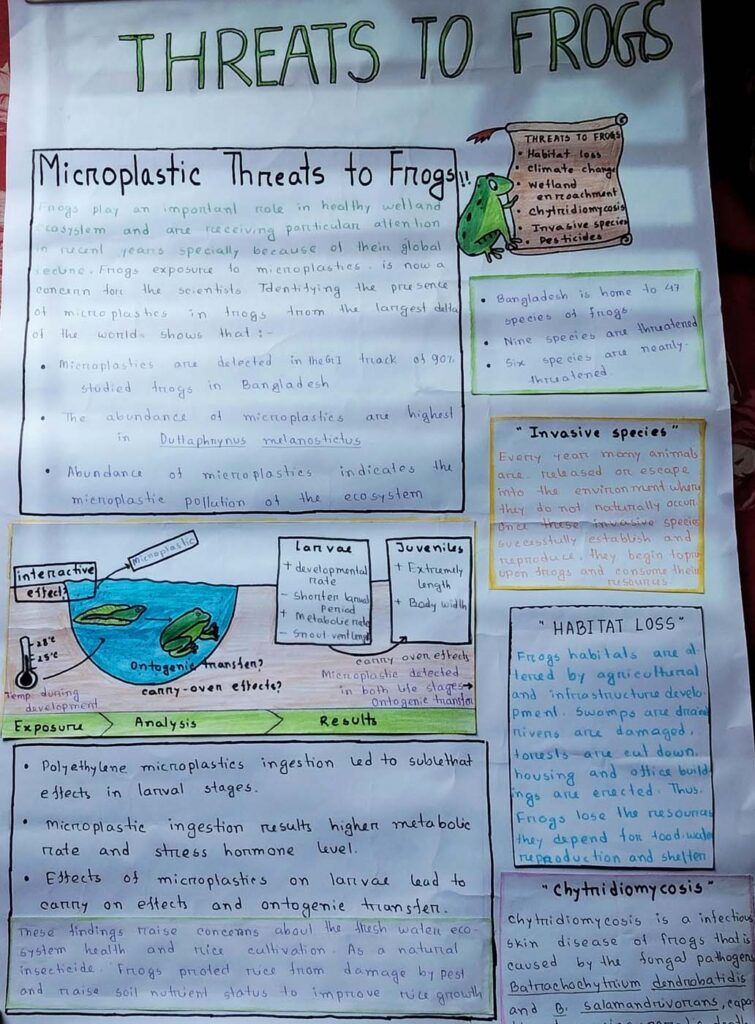 THREATS TO FROGS
Microplastic Threats to Frogs!!
Frogs play an important role in healthy wetland
ecosystem and are receiving particular attention
in recent years specially because of their global
decline. Frogs exposure to microplastics. is now a
concern for the scientists Identifying the presence
of microplastics in frogs from the largest delta
of the world. shows that :-
• Microplastics are detected in the GI track of 90%
studied frogs in Bangladesh
• The abundance of microplastics are highest
in Duttaphrynus melanostictus
• Abundance of microplastics indicates the
microplastic pollution of the ecosystem
THREATS TO FROGS
• Habitat loss
• Climate change
• Wetland
enroachment
• Chytridiomycosis
• Invasive species
• Pesticides
• Bangladesh is home to 47
species of frogs.
• Nine species are threatened
• Six species are nearly.
threatened.
"Invasive species"
Every year many animals
are released or escape
into the environment where
they do not naturally occur.
Once these invasive species
successfully establish and
reproduce, they begin to prey
upon frogs and consume their
resources
interactive
effect?
Microplastic
28°C
25°C
Temp during
development
Ontogenic transfer?
carry-over effects?
Larvae
+ developmental
rate
- shorten larval
period
+ Metabolic rate
- Snout vent length
Juveniles
+ Extremly
length
+ Body width
carry over effects
Microplastic detected
in both life stages→
Ontogenic transfer
Exposure
Analysis
Results
"HABITAT LOSS"
Frogs habitats are al
tered by agricultural
and infrastructure develo-
pment. Swamps are drained
rivers are damaged,
forests are cut down,
housing and office build-
ings are erected. Thus.
Frogs lose the resources
they depend for food, water
reproduction and shelter
• Polyethylene microplastics ingestion led to sublethal
effects in larval stages.
• Microplastic ingestion results higher metabolic
rate and stress hormone level.
• Effects of microplastics on larvae lead to
carry on effects and ontogenic transfer.
These findings raise concerns about the fresh water eco-
system health and rice cultivation. As a natural
insecticide. Frogs protect rice from damage by pest
and raise soil nutrient status to improve rice growth
"Chytridiomycosis"
Chytridiomycosis is a infectious
skin disease of frogs that is
caused by the fungal pathogens
Batrachochytrium dendrobatidis
and B. salamandrivorans,